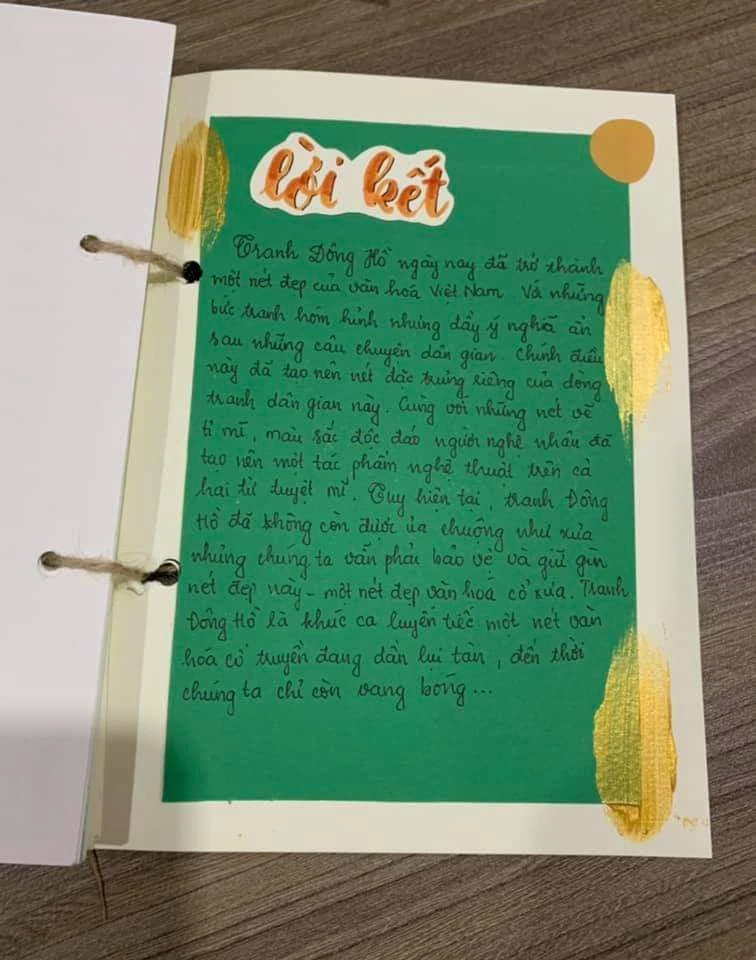 lời kết
Tranh Đông Hồ ngày nay đã trở thành
một nét đẹp của văn hoá Việt Nam Với những
bức tranh hóm hỉnh nhưng đầy ý nghĩa ẩn
sau những câu chuyện dân gian. Chính điều
này đã tạo nên nét đặc trưng riêng của dòng
tranh dân gian này. Cùng với những nét vẽ
tỉ mĩ, màu sắc độc đáo người nghệ nhân đã
tạo nên một tác phẩm nghệ thuật trên cả
hai từ tuyệt mĩ. Tuy hiện tại, tranh Đông
Hồ đã không còn được ưa chuộng như xưa
nhưng chúng ta vẫn phải bảo vệ và giữ gìn
nét đẹp này - một nét đẹp văn hoá cổ xưa. Tranh
Đông Hồ là khúc ca luyến tiếc một nét văn
hóa cổ truyền đang dần lụi tàn, đến thời
chúng ta chỉ còn vang bóng...